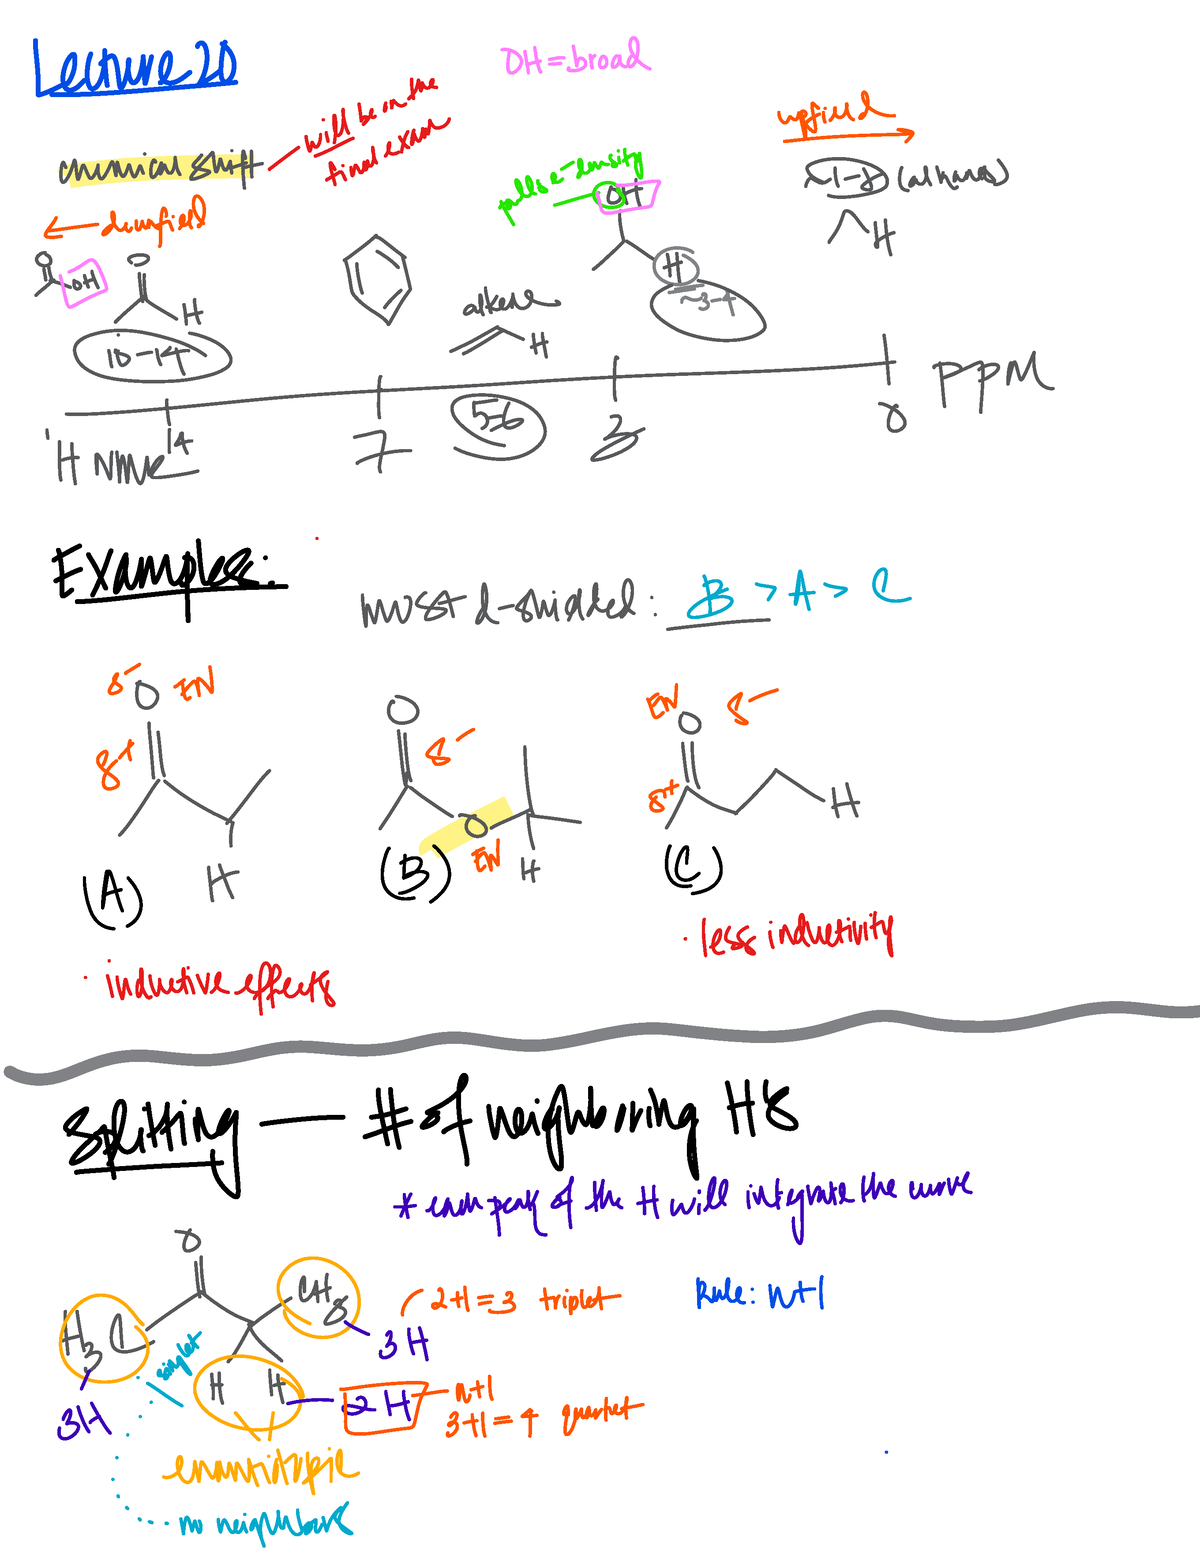 Lecture 20
OH = broad
chemical shift — will be in the
final exam
upfield
pulls e- density
OH
~1-8 (alkanes)
← downfield
H
O
OH
O
H
10-14
alkene
H
H
~3-4
PPM
14
7
5-6
3
0
¹H NMR
Examples:
most d-shielded: B > A > C
δ- O EN
δ+
H
(A)
• inductive effects
O
δ-
O
EN
H
(B)
EN
O δ-
δ+
H
(C)
• less inductivity
Splitting — # of neighboring H's
* each peak of the H will integrate the curve
O
H3C
CH3
3H
2+1 = 3 triplet
Rule: n+1
singlet
H H
2H
n+1
3+1 = 4 quartet
3H
enantiotopic
no neighbors